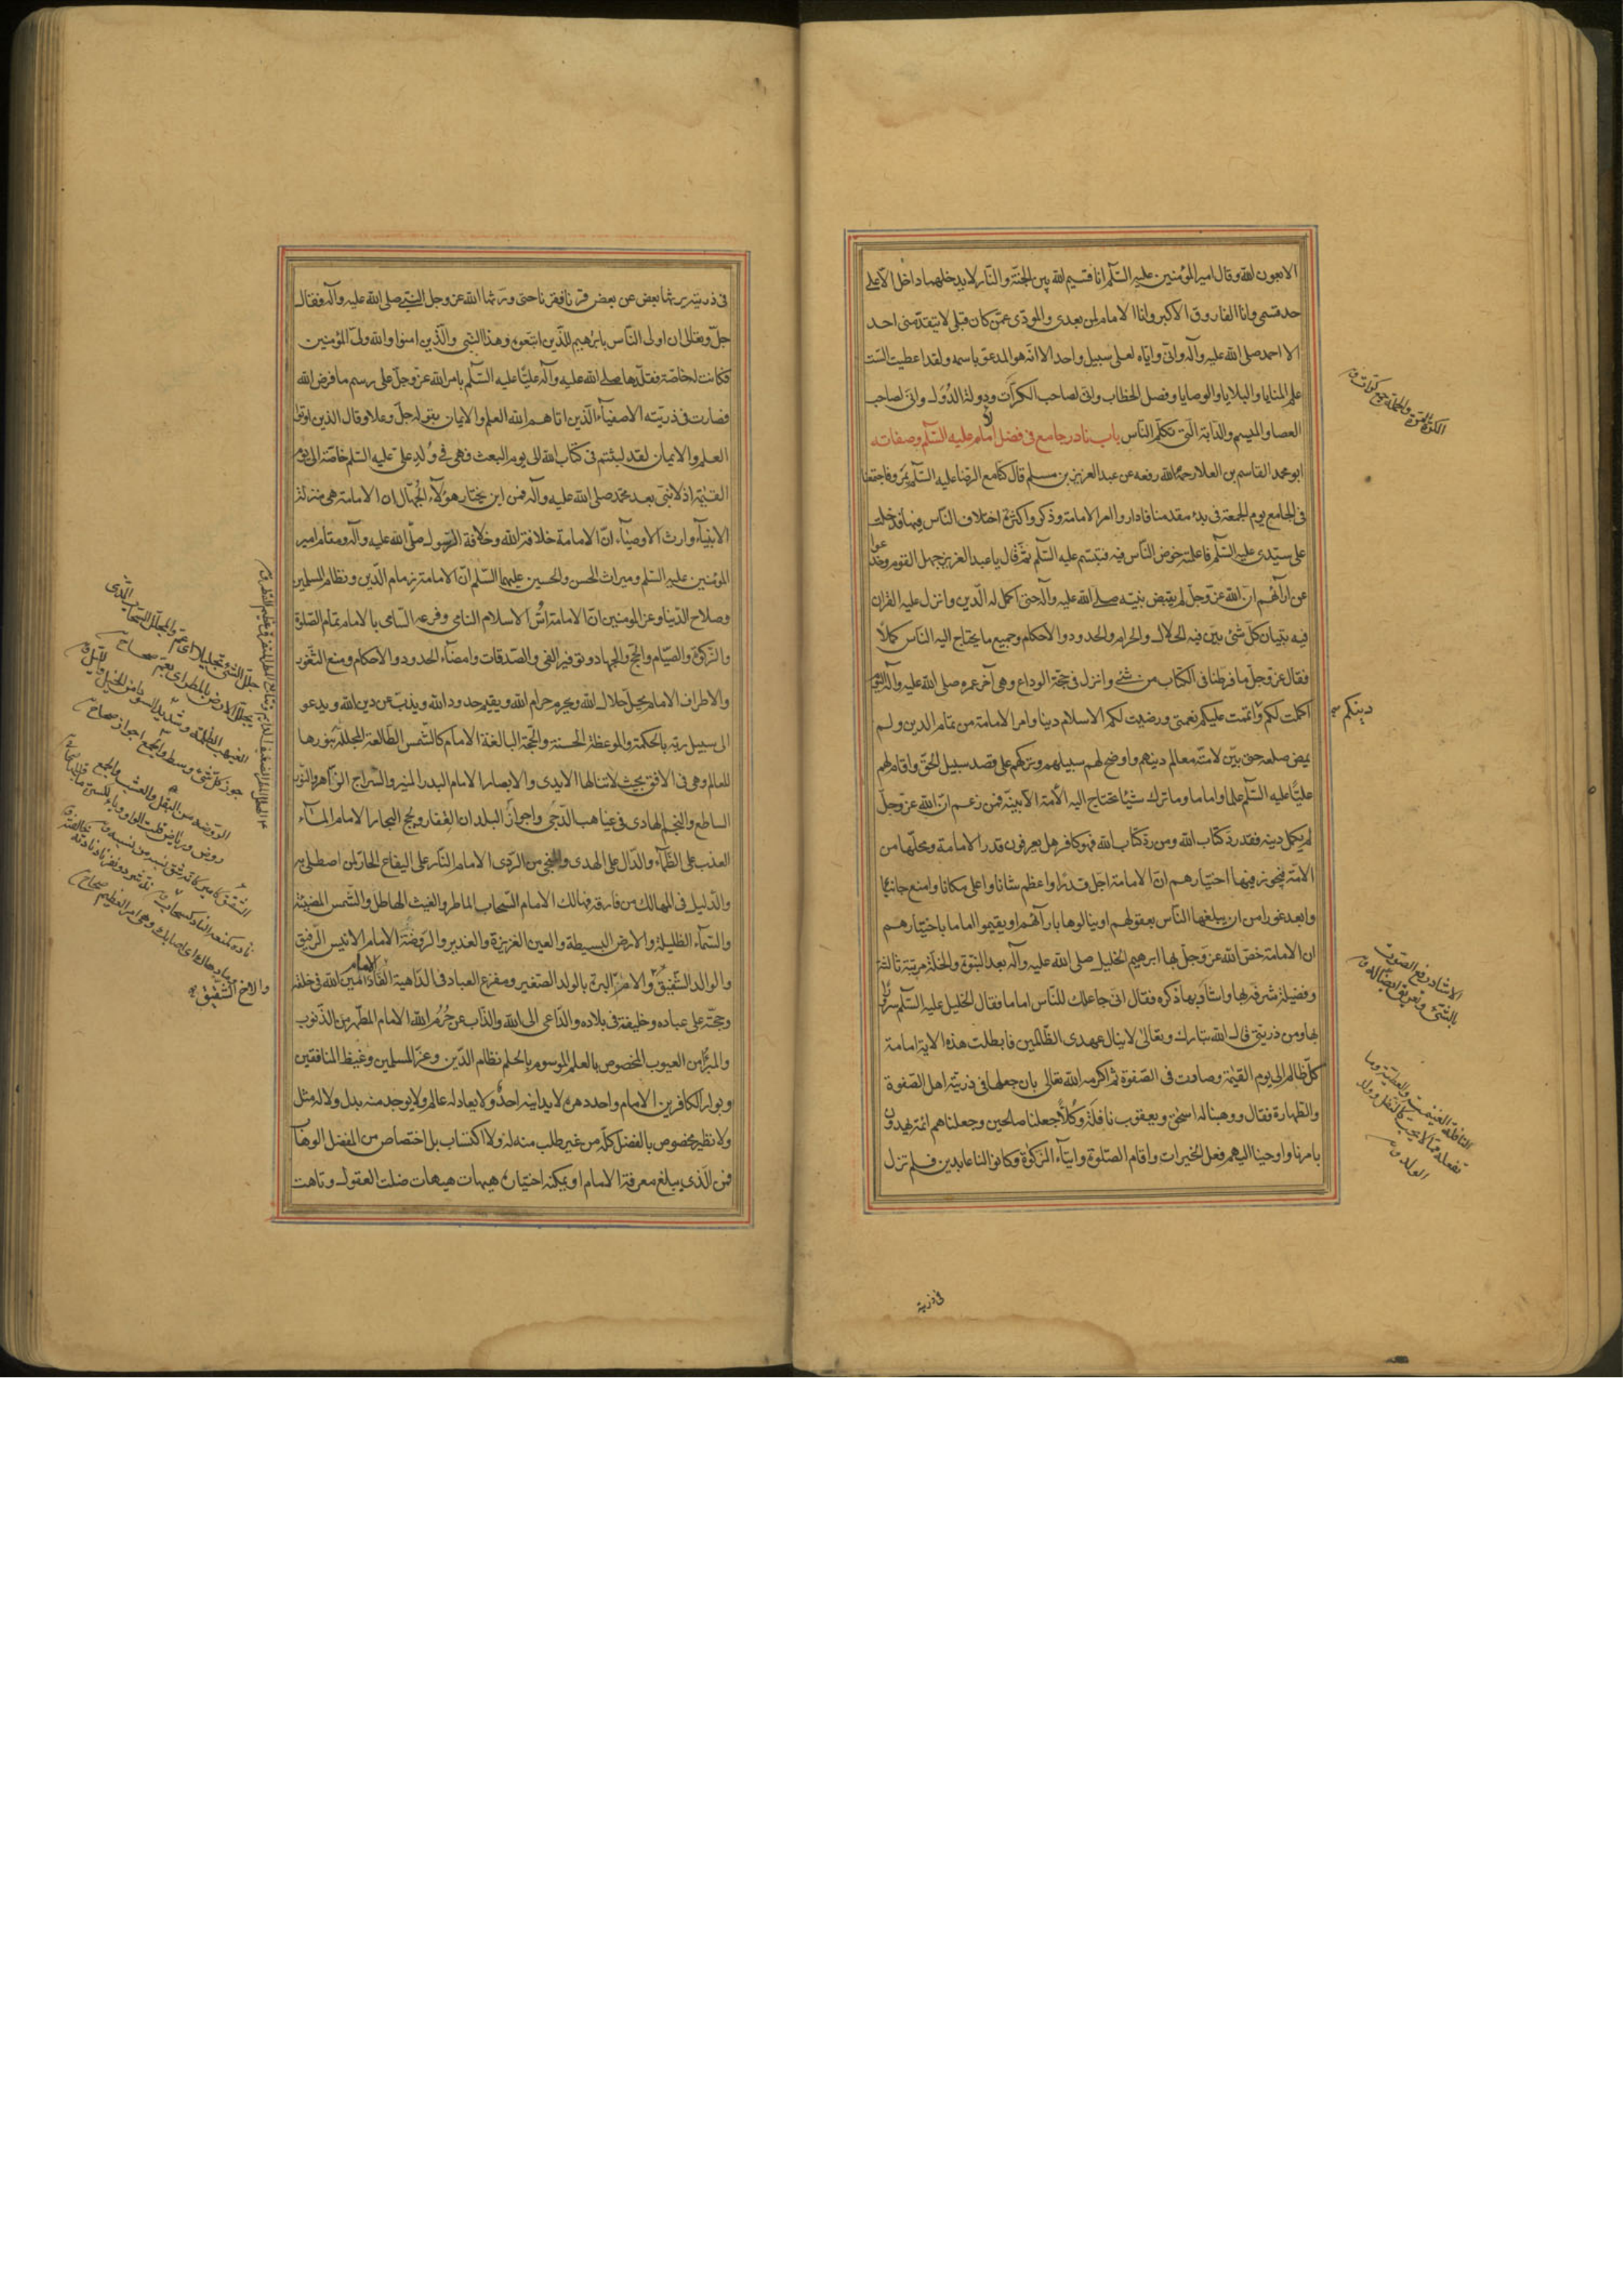 الا بعون الله وقال امير المؤمنين عليه السّلم انا قسيم الله بين الجنّة والنّار لا يدخلها داخل الا على
حد قسمى وانا الفاروق الاكبر وانا الامام لمن بعدى والمودّى عمّن كان قبلى لا يتقدّمنى احد
الا احمد صلى الله عليه وآله وانّى وايّاه لعلى سبيل واحد الا انّه هو المدعوّ باسمه ولقد اعطيت السّت
علم المنايا والبلايا والوصايا وفصل الخطاب وانّى لصاحب الكرّات ودولة الدُّوَل وانّى لصاحب
العصا والميسم والدّابة الّتى تكلّم النّاس باب نادر جامع فى فضل الامام عليه السّلم وصفاته
ابو محمد القاسم بن العلا رحمه الله رفعه عن عبد العزيز بن مسلم قال كنّا مع الرّضا عليه السّلم بمَرو فاجتمعنا
فى الجامع يوم الجمعة فى بدء مقدمنا فاداروا امر الامامة وذكروا كثرة اختلاف النّاس فيها فدخلت
على سيّدى عليه السّلم فاعلمته خوض النّاس فيه فتبسّم عليه السّلم ثمّ قال يا عبد العزيز جهل القوم وخدعوا
عن ارآئهم انّ الله عزّ وجلّ لم يقبض نبيّه صلى الله عليه وآله حتى اكمل له الدّين وانزل عليه القرآن
فيه تبيان كلّ شئ بيّن فيه الحلال والحرام والحدود والاحكام وجميع ما يحتاج اليه النّاس كملاً
فقال عزّ وجلّ ما فرطنا فى الكتاب من شئ وانزل فى حجّة الوداع وهى آخر عمره صلى الله عليه وآله اليوم
اكملت لكم واتممت عليكم نعمتى ورضيت لكم الاسلام دينا وامر الامامة من تمام الدين ولم
يمض صلعم حتى بيّن لامّته معالم دينهم واوضح لهم سبيلهم وتركهم على قصد سبيل الحقّ واقام لهم
عليّاً عليه السّلم علما واماما وما ترك شيئا يحتاج اليه الأمّة الا بيّنه فمن زعم انّ الله عزّ وجلّ
لم يكمل دينه فقد ردّ كتاب الله ومن ردّ كتاب الله فهو كافر هل يعرفون قدر الامامة ومحلّها من
الامّة فيجوز فيها اختيارهم انّ الامامة اجلّ قدرًا واعظم شانا واعلى مكانا وامنع جانبا
وابعد غورا من ان يبلغها النّاس بعقولهم او ينالوها بارآئهم او يقيموا اماما باختيارهم
ان الامامة خصّ الله عزّ وجلّ بها ابرهيم الخليل صلى الله عليه وآله بعد النبوّة والخلّة مرتبة ثالثة
وفضيلة شرّفه بها واشاد بها ذكره فقال انّى جاعلك للنّاس اماما فقال الخليل عليه السّلم سرورا
بها ومن ذريتى قال الله تبارك وتعالى لا ينال عهدى الظّالمين فابطلت هذه الاية امامة
كلّ ظالم الى يوم القيمة وصارت فى الصّفوة ثم اكرمه الله تعالى بان جعلها فى ذريّته اهل الصّفوة
والطّهارة فقال ووهبنا له اسحٰق ويعقوب نافلَة وكُلاًّ جعلنا صالحين وجعلناهم ائمّة يهدون
بامرنا واوحينا اليهم فعل الخيرات واقام الصّلوة وايتآء الزّكوة وكانوا لنا عابدين فلم تزل
الكرّة المرّة والحملة ج كرّات ق
دينكم
الاشادة رفع الصّوت
بالشّئ وتعريف الضّالّة ق
النافلة الغنيمة والعطيّة وما
تفعله ممّا لا يجب كالنفل وولد
الولد ق
فى ذريته
فى ذريّته يرثها بعض عن بعض قرنا فقرنا حتى ورّثها الله عز وجل النّبى صلى الله عليه وآله فقال
جلّ وتعالى ان اولى النّاس بابرٰهيم للّذين اتبعوه وهذا النّبى والّذين امنوا والله ولىّ المؤمنين
فكانت له خاصّة فقلّدها صلى الله عليه وآله عليّا عليه السّلم بامر الله عزّ وجلّ على رسم ما فرض الله
فصارت فى ذريّته الاصفيآء الّذين اتاهم الله العلم والايمان بقوله جلّ وعلا وقال الذين اوتوا
العلم والايمان لقد لبثتم فى كتاب الله الى يوم البعث فهى فى وُلد على عليه السّلم خاصّة الى يوم
القيٰمة اذ لا نبىّ بعد محمّد صلى الله عليه وآله فمن اين يختار هؤلآء الجُهّال ان الامامة هى منزلة
الانبيآء وارث الاوصيآء انّ الامامة خلافة الله وخلافة الرّسول صلّى الله عليه وآله ومقام امير
المؤمنين عليه السّلم وميراث الحسن والحسين عليهما السّلم انّ الامامة زمام الدّين ونظام المسلمين
وصلاح الدّنيا وعزّ المومنين انّ الامامة اُسُّ الاسلام النامى وفرعه السّامى بالامام تمام الصّلوة
والزّكوة والصّيام والحجّ والجهاد وتوفير الفئ والصّدقات وامضآء الحدود والاحكام ومنع الثّغور
والاطراف الامام يحلّ حلال الله ويحرم حرام الله ويقيم حدود الله ويذبّ عن دين الله ويدعو
الى سبيل ربّه بالحكمة والموعظة الحسنة والحجّة البالغة الامام كالشّمس الطّالعة المجلّلة بنورها
للعالم وهى فى الافق بحيث لا تنالها الايدى والابصار الامام البدر المنير والسّراج الزّاهر والنّور
الساطع والنجم الهادى فى غياهب الدّجىٰ واجواز البلدان والقفار ولجج البحار الامام المآء
العذب على الظّمآء والدّال على الهدى والمنجى من الرّدى الامام النّار على اليفاع الحارّ لمن اصطلى به
والدّليل فى المهالك من فارقه فهالك الامام السّحاب الماطر والغيث الهاطل والشّمس المضيئة
والسّمآء الظليلة والارض البسيطة والعين الغزيرة والغدير والرّوضة الامام الانيس الرّفيق
والوالد الشّفيق والامّ البرّة بالولد الصّغير ومفزع العباد فى الدّاهية النّآد الامام امين الله فى خلقه
وحجّته على عباده وخليفته فى بلاده والدّاعى الى الله والذّاب عن حُرُم الله الامام المطهّر من الذّنوب
والمبرّأ من العيوب المخصوص بالعلم الموسوم بالحلم نظام الدّين وعزّ المسلمين وغيظ المنافقين
وبوار الكافرين الامام واحد دهره لا يدانيه احدٌ ولا يعادله عالم ولا يوجد منه بدل ولا له مثل
ولا نظير مخصوص بالفضل كلّه من غير طلب منه له ولا اكتساب بل اختصاص من المفضل الوهّاب
فمن الّذى يبلغ معرفة الامام او يمكنه اختياره هيهات هيهات ضلت العقول وتاهت
جلّل الشئ تجليلا اى عمّ والمجلّل السّحاب الّذى
يجلّل الارض بالمطر اى يعمّ صحاح
جوز كلّ شئ وسطه والجمع اجواز صحاح
والاخ الشّفيق